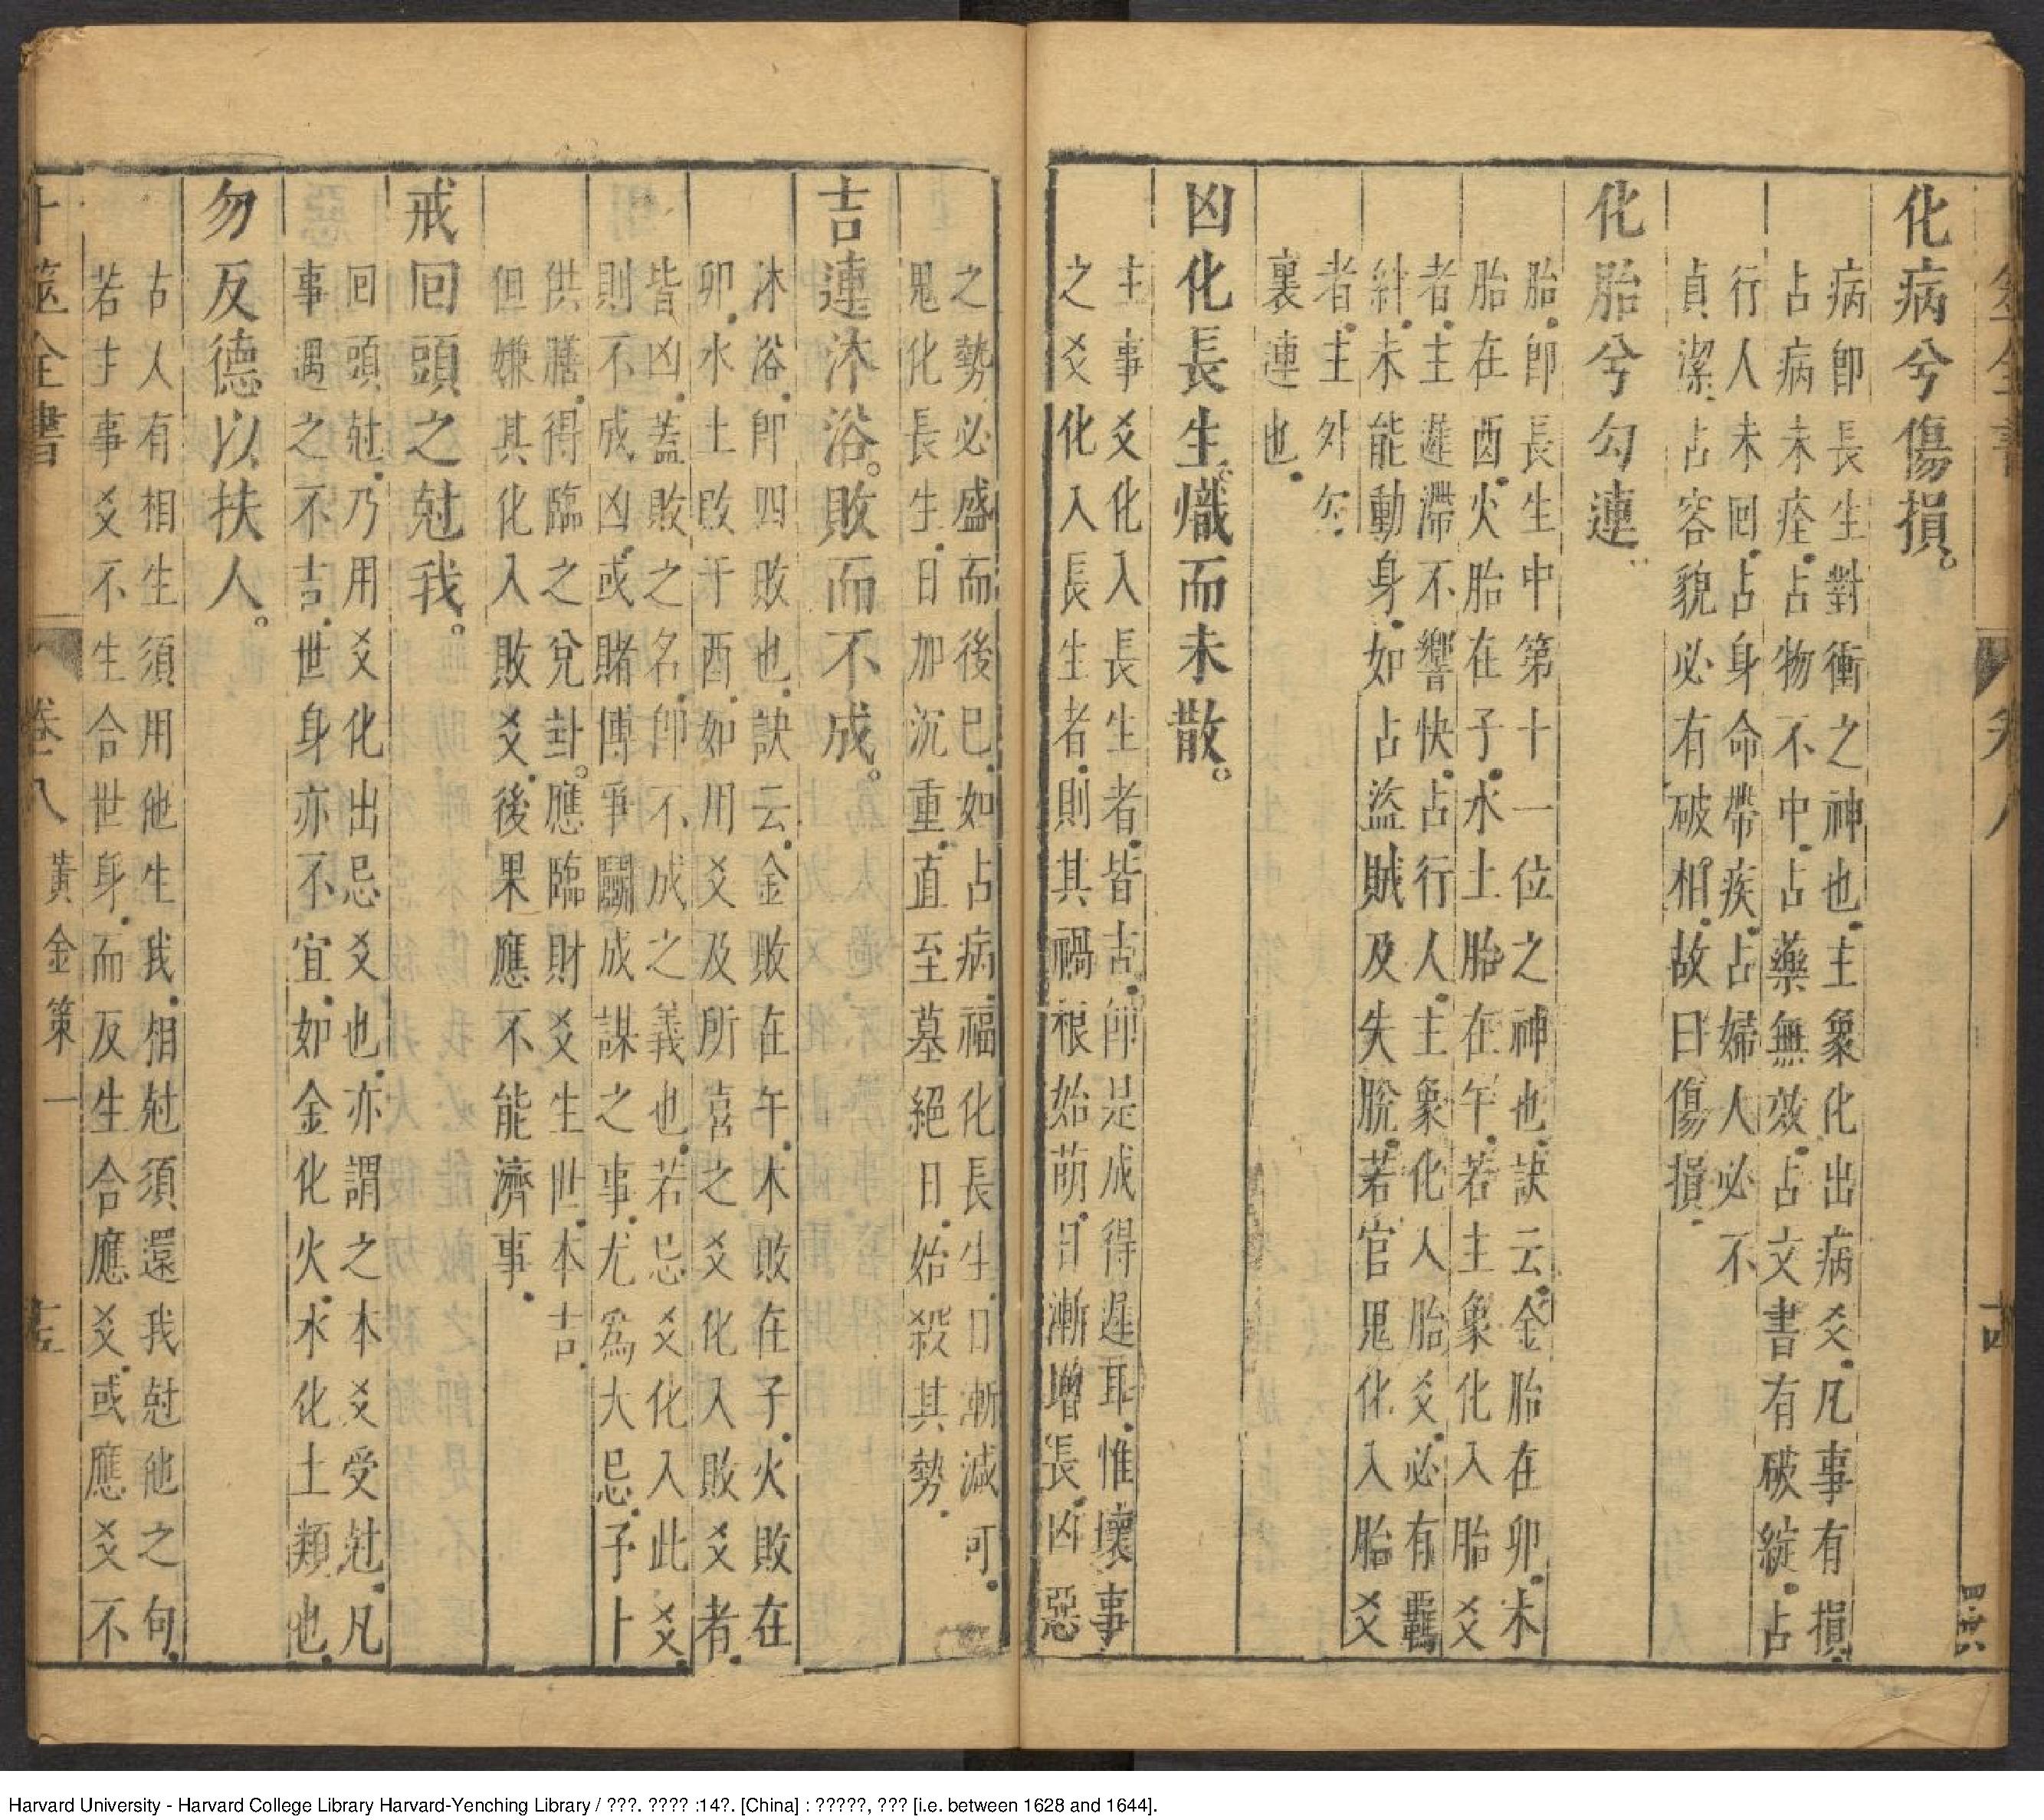 化病兮傷損。
病卽長生對衝之神也主象化出病爻凡事有損
占病未痊占物不中占藥無效占文書有破綻占
行人未囘占身命帶疾占婦人必不
貞潔占容貌必有破相故曰傷損
化胎兮勾連
胎卽長生中第十一位之神也訣云金胎在卯木
胎在酉火胎在子水土胎在午若主象化入胎爻
者主遲滯不響快占行人主象化入胎爻必有羈
絆未能動身如占盜賊及失脫若官鬼化入胎爻
者主外勾
裏連也
凶化長生熾而未散。
主事爻化入長生者皆吉卽是成得遲耳惟壞事
之爻化入長生者則其禍根始萌日漸增長凶惡
之勢必盛而後已如占病福化長生日漸減可
鬼化長生日加沉重直至墓絕日始殺其勢
吉連沐浴。敗而不成。
沐浴卽四敗也訣云金敗在午木敗在子火敗在
卯水土敗于酉如用爻及所喜之爻化入敗爻者
皆凶蓋敗之名卽不成之義也若忌爻化入此爻
則不成凶或賭博爭鬭成謀之事尤爲大忌予卜
供膳得臨之兌卦應臨財爻生世本吉
但嫌其化入敗爻後果應不能濟事
戒回頭之尅我。
回頭尅乃用爻化出忌爻也亦謂之本爻受尅凡
事遇之不吉世身亦不宜如金化火水化土類也
勿反德以扶人。
古人有相生須用他生我相尅須還我尅他之句
若主事爻不生合世身而反生合應爻或應爻不
卜筮全書
卷八
黃金策一
十五